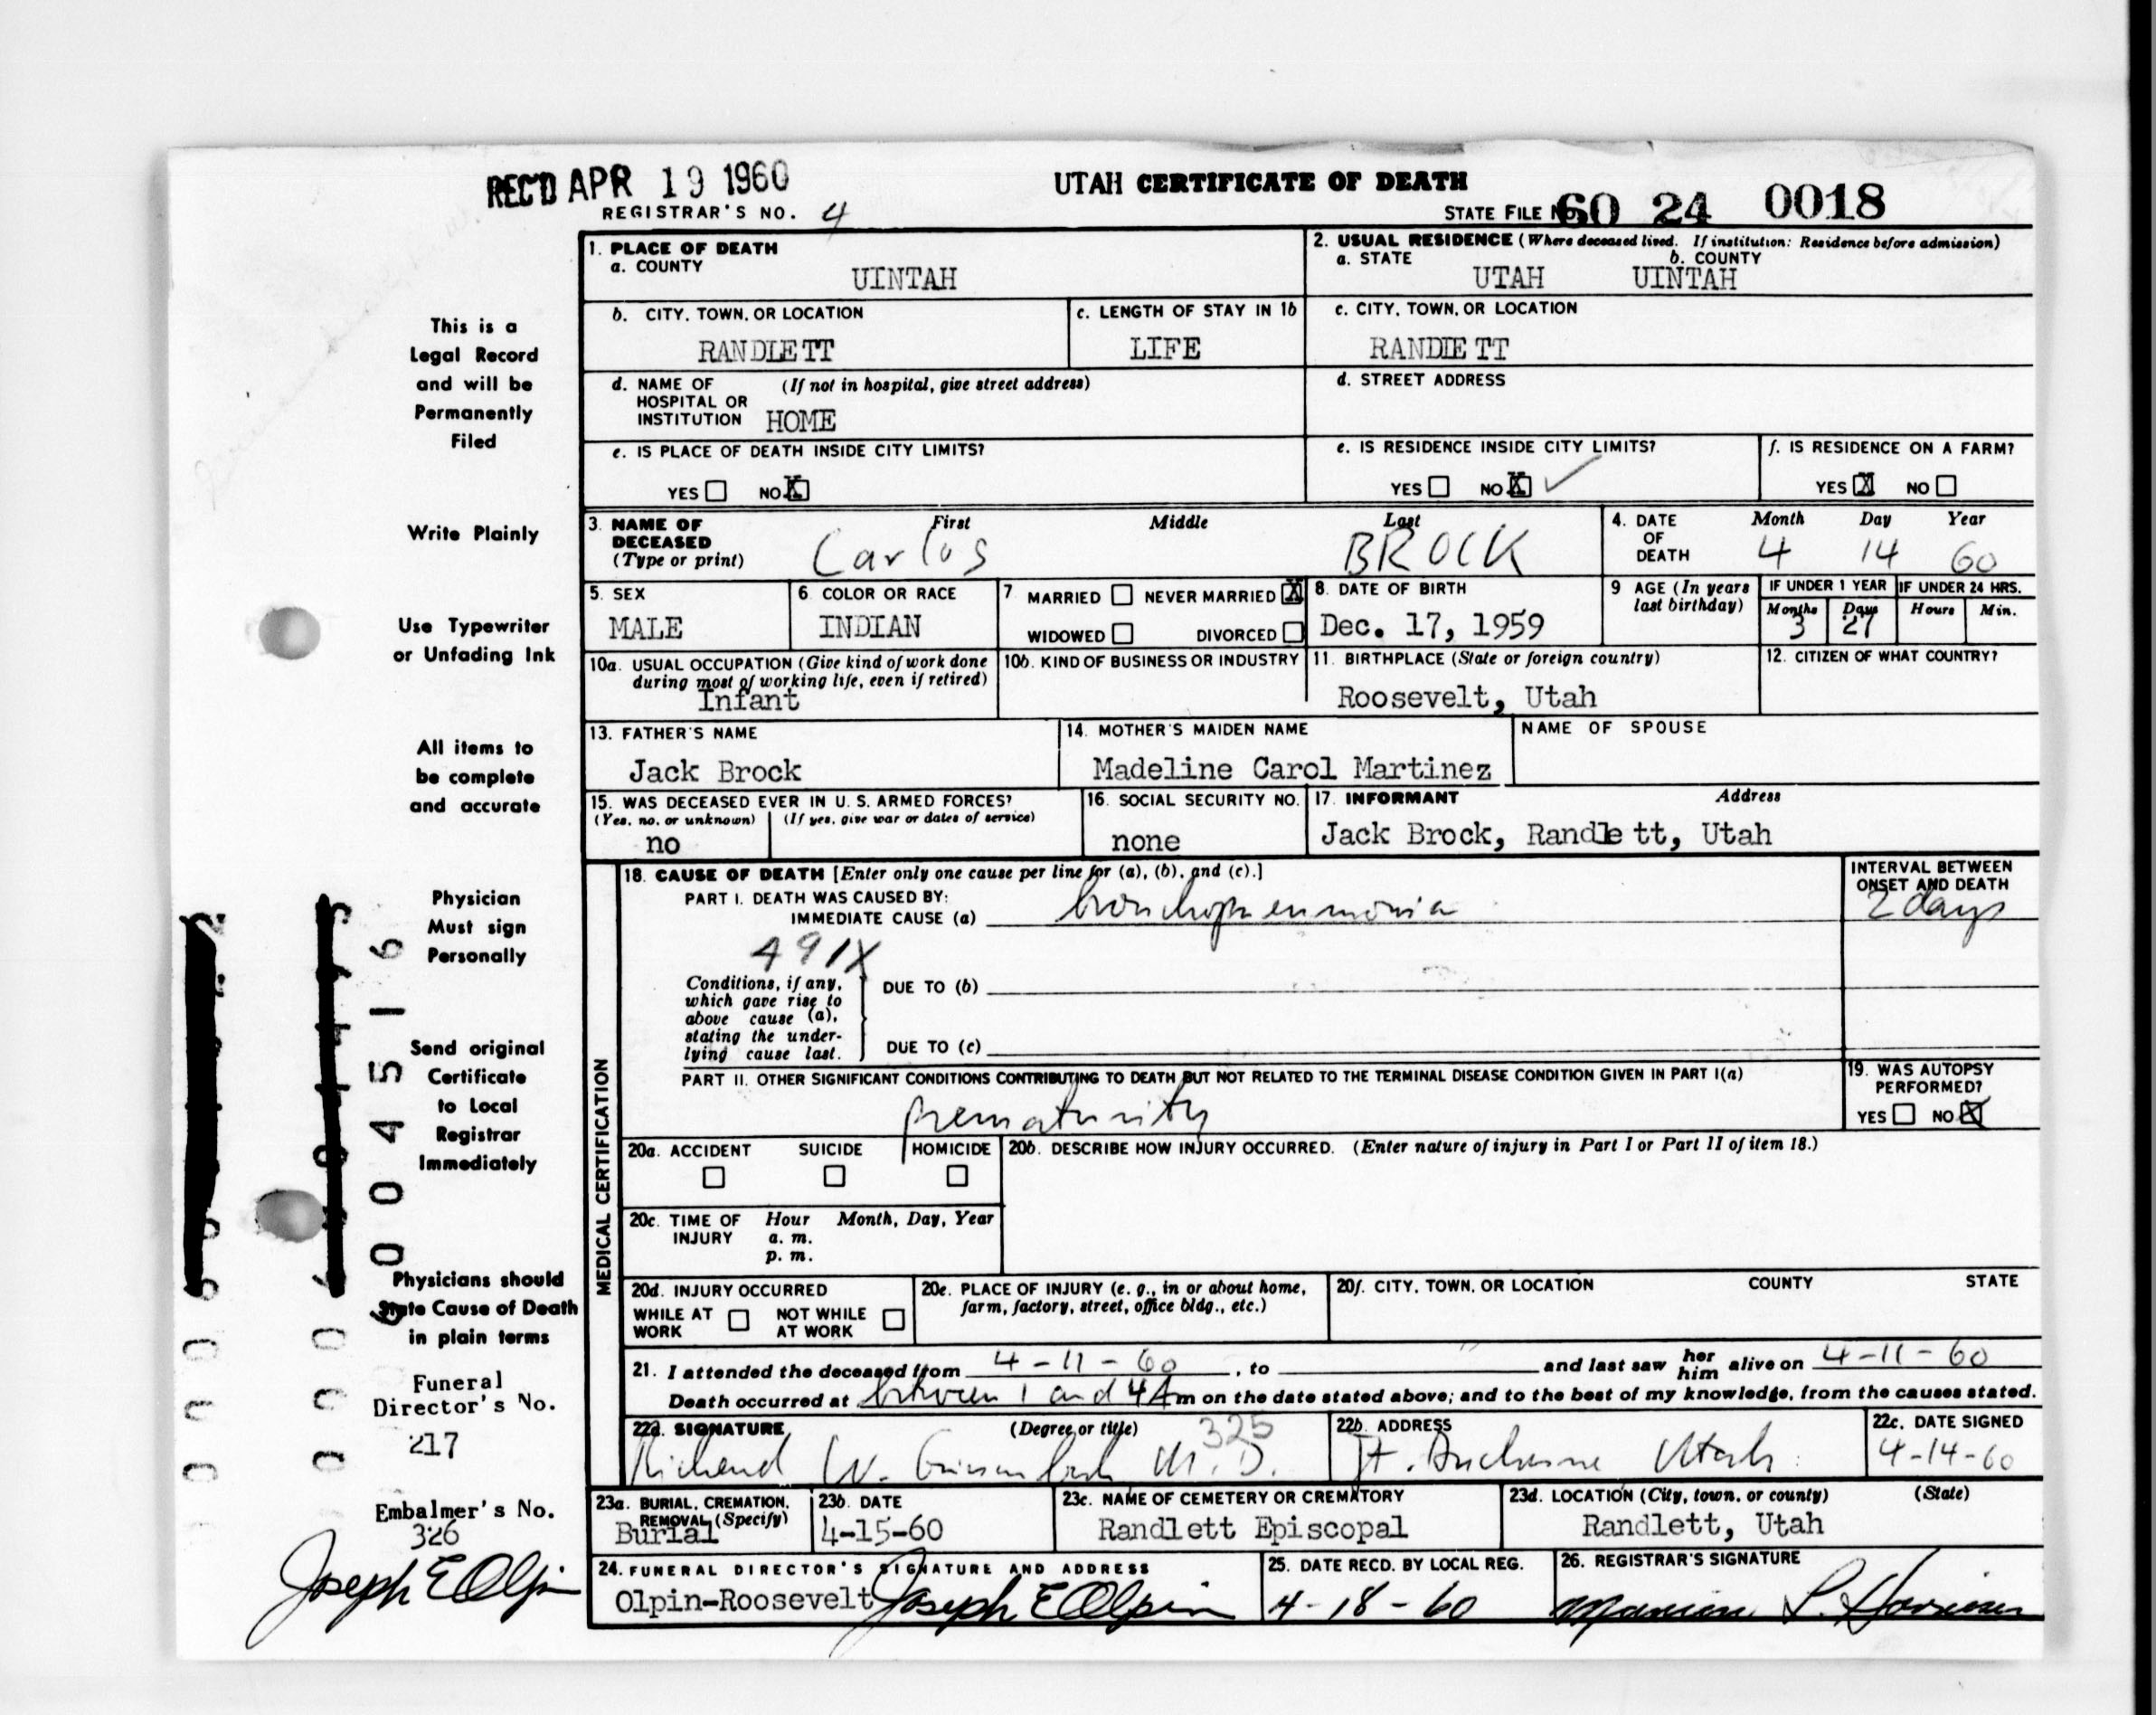 REC'D APR 19 1960
UTAH CERTIFICATE OF DEATH
REGISTRAR'S NO. 4
STATE FILE NO. 60 24 0018
1. PLACE OF DEATH
a. COUNTY
UINTAH
2. USUAL RESIDENCE (Where deceased lived. If institution: Residence before admission)
a. STATE b. COUNTY
UTAH UINTAH
b. CITY, TOWN, OR LOCATION
RANDLETT
c. LENGTH OF STAY IN 1b
LIFE
c. CITY, TOWN, OR LOCATION
RANDLETT
d. NAME OF (If not in hospital, give street address)
HOSPITAL OR
INSTITUTION HOME
d. STREET ADDRESS
e. IS PLACE OF DEATH INSIDE CITY LIMITS?
YES NO X
e. IS RESIDENCE INSIDE CITY LIMITS?
YES NO X
f. IS RESIDENCE ON A FARM?
YES X NO
3. NAME OF DECEASED (Type or print)
First Middle Last
Carlos BROCK
4. DATE OF DEATH
Month Day Year
4 14 60
5. SEX
MALE
6. COLOR OR RACE
INDIAN
7 MARRIED NEVER MARRIED X
WIDOWED DIVORCED
8. DATE OF BIRTH
Dec. 17, 1959
9 AGE (In years last birthday)
IF UNDER 1 YEAR IF UNDER 24 HRS.
Months Days Hours Min.
3 27
10a. USUAL OCCUPATION (Give kind of work done
during most of working life, even if retired)
Infant
10b. KIND OF BUSINESS OR INDUSTRY
11. BIRTHPLACE (State or foreign country)
Roosevelt, Utah
12. CITIZEN OF WHAT COUNTRY?
13. FATHER'S NAME
Jack Brock
14. MOTHER'S MAIDEN NAME
Madeline Carol Martinez
NAME OF SPOUSE
15. WAS DECEASED EVER IN U. S. ARMED FORCES?
(Yes, no, or unknown) (If yes, give war or dates of service)
no
16. SOCIAL SECURITY NO.
none
17. INFORMANT Address
Jack Brock, Randlett, Utah
MEDICAL CERTIFICATION
18. CAUSE OF DEATH [Enter only one cause per line for (a), (b), and (c).]
PART I. DEATH WAS CAUSED BY:
IMMEDIATE CAUSE (a) bronchopneumonia
INTERVAL BETWEEN
ONSET AND DEATH
2 days
491X
Conditions, if any,
which gave rise to
above cause (a),
stating the under-
lying cause last.
DUE TO (b)
DUE TO (c)
PART II. OTHER SIGNIFICANT CONDITIONS CONTRIBUTING TO DEATH BUT NOT RELATED TO THE TERMINAL DISEASE CONDITION GIVEN IN PART I(a)
prematurity
19. WAS AUTOPSY
PERFORMED?
YES NO X
20a. ACCIDENT SUICIDE HOMICIDE
20b. DESCRIBE HOW INJURY OCCURRED. (Enter nature of injury in Part I or Part II of item 18.)
20c. TIME OF INJURY
Hour Month, Day, Year
a. m.
p. m.
20d. INJURY OCCURRED
WHILE AT WORK NOT WHILE AT WORK
20e. PLACE OF INJURY (e. g., in or about home,
farm, factory, street, office bldg., etc.)
20f. CITY, TOWN, OR LOCATION COUNTY STATE
21. I attended the deceased from 4-11-60, to and last saw her him alive on 4-11-60
Death occurred at between 1 and 4 Am on the date stated above; and to the best of my knowledge, from the causes stated.
22a. SIGNATURE (Degree or title) 325
Richard W. M.D.
22b. ADDRESS
Ft. Duchesne Utah
22c. DATE SIGNED
4-14-60
23a. BURIAL, CREMATION,
REMOVAL (Specify)
Burial
23b. DATE
4-15-60
23c. NAME OF CEMETERY OR CREMATORY
Randlett Episcopal
23d. LOCATION (City, town, or county) (State)
Randlett, Utah
24. FUNERAL DIRECTOR'S SIGNATURE AND ADDRESS
Olpin-Roosevelt Joseph E Olpin
25. DATE RECD. BY LOCAL REG.
4-18-60
26. REGISTRAR'S SIGNATURE
This is a
Legal Record
and will be
Permanently
Filed
Write Plainly
Use Typewriter
or Unfading Ink
All items to
be complete
and accurate
Physician
Must sign
Personally
Send original
Certificate
to Local
Registrar
Immediately
Physicians should
State Cause of Death
in plain terms
Funeral
Director's No.
217
Embalmer's No.
326
Joseph E Olpin
6004516